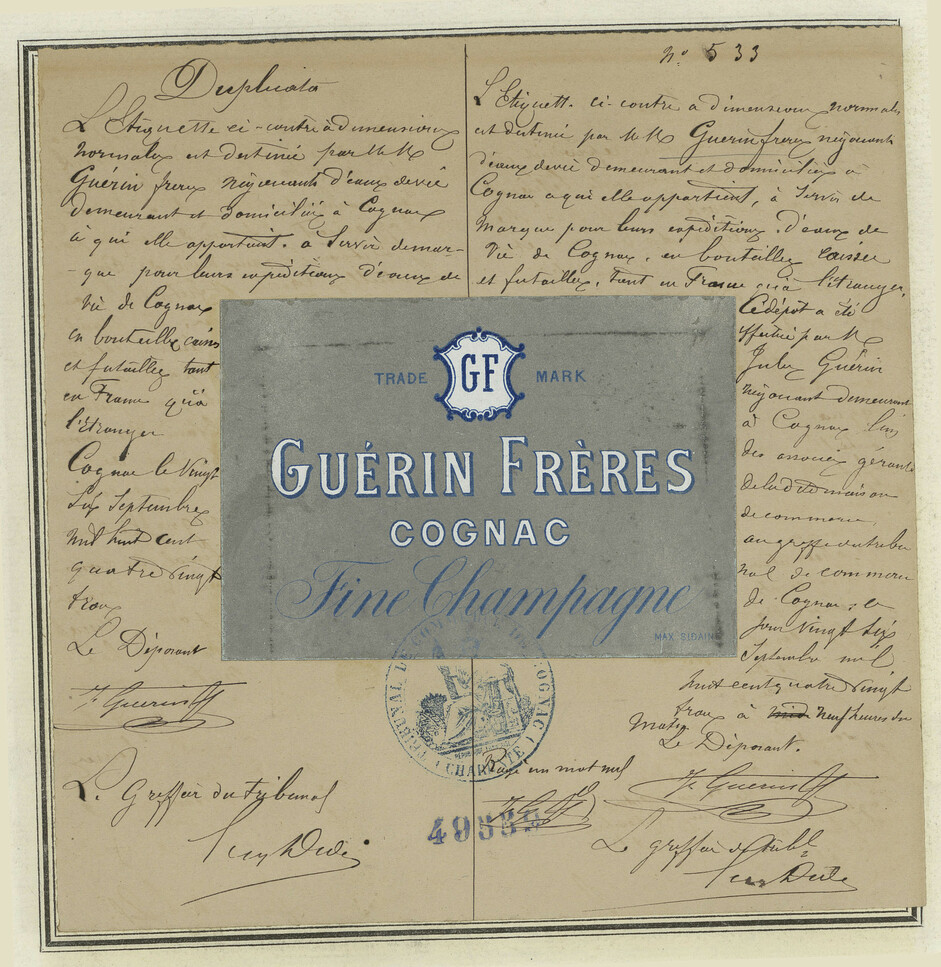 Duplicata
L'Etiquette ci-contre à dimensions
normales est destinée par MM
Guérin frères négociants d'eaux de vie
demeurant et domiciliés à Cognac
à qui elle appartient. à Servir de mar-
-que pour leurs expéditions d'eaux de
Vie de Cognac
en bouteilles caisses
et futailles tant
en France qu'à
l'étranger
Cognac le Vingt
Six Septembre
mil huit cent
quatre vingt
trois
Le Déposant
J. Guérin
Le Greffier du tribunal
N.º 533
L'Etiquette ci-contre a dimensions normales
est destinée par MM Guérin frères négociants
d'eaux de vie demeurant et domiciliés à
Cognac a qui elle appartient, à Servir de
Marque pour leurs expéditions d'eaux de
Vie de Cognac, en bouteilles caisses
et futailles, tant en France qu'à l'étranger.
Ce dépot a été
effectué par M
Jules Guérin
négociant demeurant
à Cognac l'un
des associés gérants
de la dite maison
de commerce,
au greffe du tribu
nal de commerce
de Cognac, le
jour vingt six
Septembre mil
huit cent quatre vingt
trois à neuf heures du
Matin
Le Déposant.
J. Guérin
Rayé un mot nul
Le greffier du Trib.
TRADE GF MARK
GUÉRIN FRÈRES
COGNAC
Fine Champagne
MAX SIDAINE
TRIBUNAL DE COMMERCE DE COGNAC (CHARENTE)